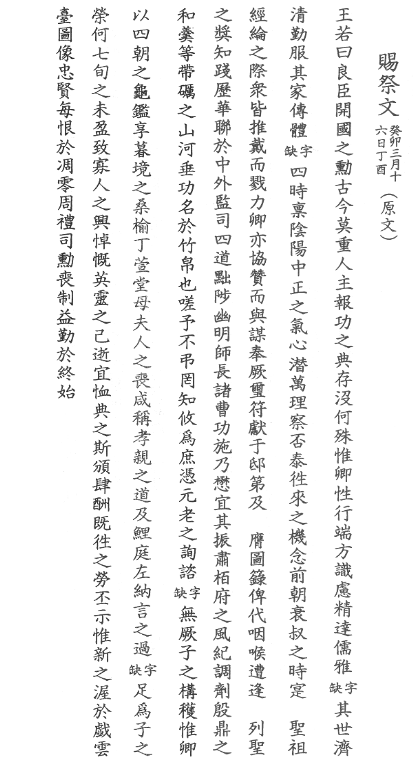 賜祭文 癸卯三月十六日丁酉 (原文)
王若曰良臣開國之勳古今莫重人主報功之典存沒何殊惟卿性行端方識慮精達儒雅缺字其世濟
清勤服其家傳體缺字四時稟陰陽中正之氣心潛萬理察否泰徃來之機念前朝衰叔之時寔 聖祖
經綸之際衆皆推戴而戮力卿亦協贊而與謀奉厥璽符獻于邸第及 膺圖籙俾代咽喉遭逢 列聖
之獎知踐歷華聯於中外監司四道黜陟幽明師長諸曹功施乃懋宜其振肅栢府之風紀調劑殷鼎之
和羹等帶礪之山河垂功名於竹帛也嗟予不弔罔知攸爲庶憑元老之詢諮缺字無厥子之構穫惟卿
以四朝之龜鑑享暮境之桑榆丁萱堂母夫人之喪咸稱孝親之道及鯉庭左納言之過缺字足爲子之
榮何七旬之未盈致寡人之興悼慨英靈之已逝宜恤典之斯頒肆酬既徃之勞丕示惟新之渥於戲雲
臺圖像忠賢每恨於凋零周禮司勳喪制益勤於終始